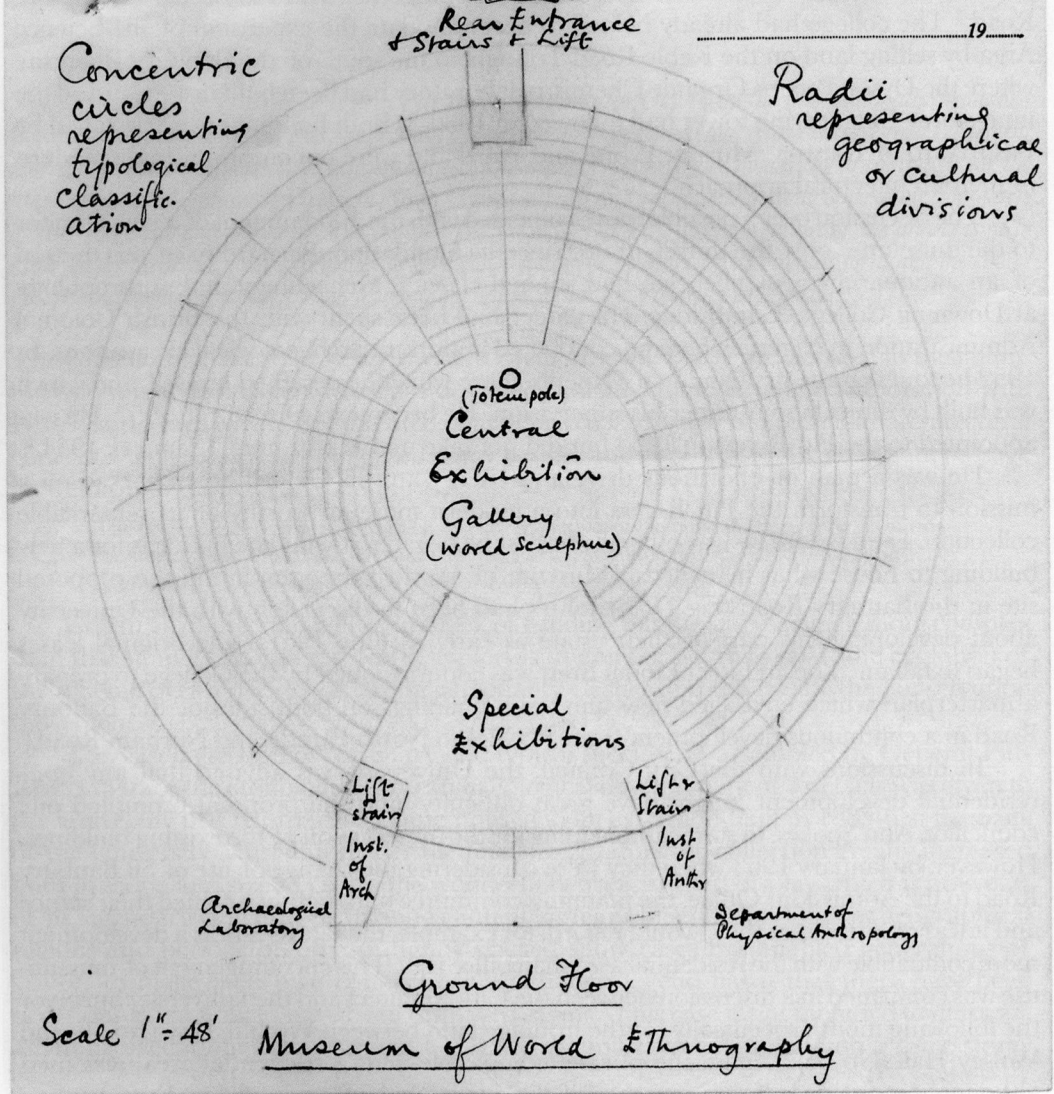 Rear Entrance
& Stairs & Lift
19
Concentric
circles
representing
typological
classific-
ation
Radii
representing
geographical
or cultural
divisions
(Totem pole)
Central
Exhibition
Gallery
(World Sculpture)
Special
Exhibitions
Lift
stairs
Lift &
Stairs
Inst.
of
Arch
Inst
of
Anthr
Archaeological
Laboratory
Department of
Physical Anthropology
Ground Floor
Scale 1" = 48'
Museum of World Ethnography